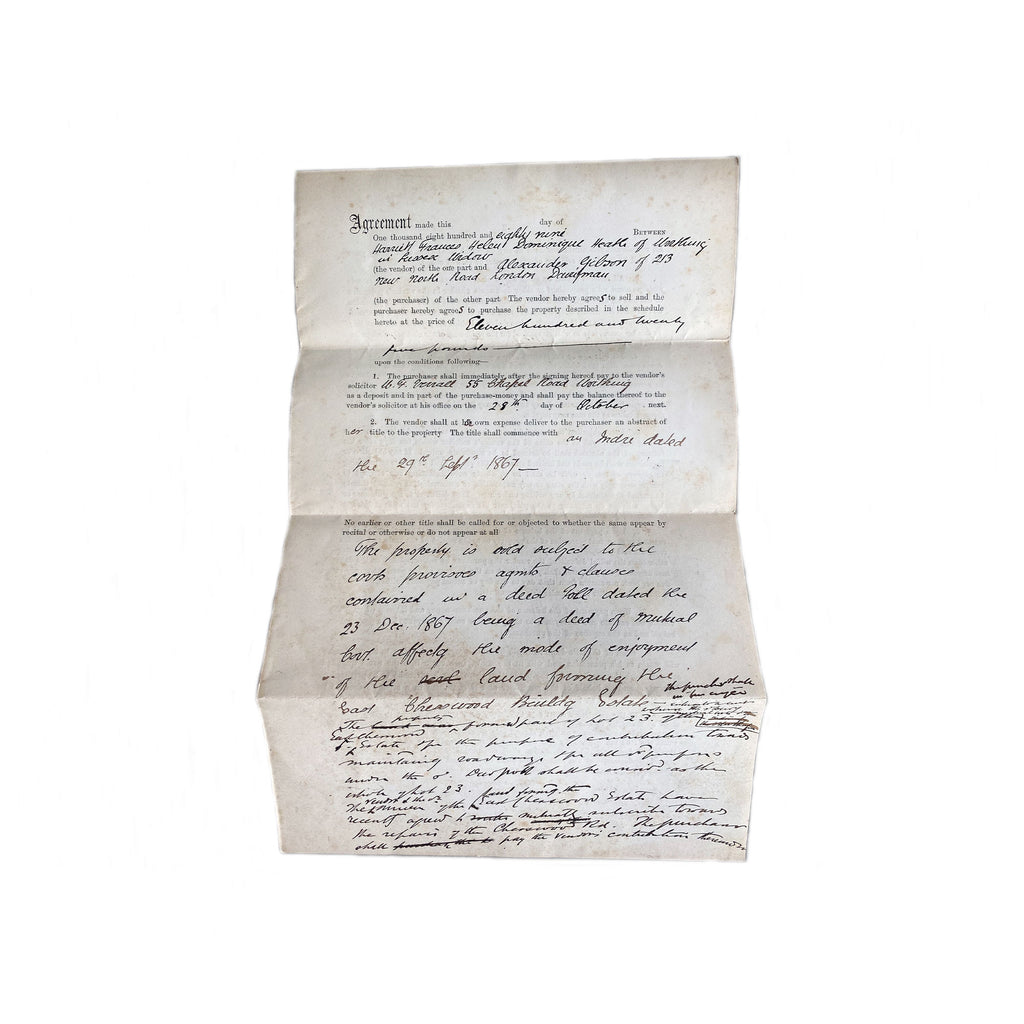 Agreement made this day of
One thousand eight hundred and eighty nine BETWEEN
Harriett Frances Helen Dominique Heath of Worthing
in Sussex Widow
(the vendor) of the one part and Alexander Gibson of 213
New North Road London Dairyman
(the purchaser) of the other part The vendor hereby agrees to sell and the
purchaser hereby agrees to purchase the property described in the schedule
hereto at the price of Eleven hundred and twenty
five pounds
upon the conditions following—
1. The purchaser shall immediately after the signing hereof pay to the vendor's
solicitor W. F. Verrall 55 Chapel Road Worthing
as a deposit and in part of the purchase-money and shall pay the balance thereof to the
vendor's solicitor at his office on the 28th day of October next.
2. The vendor shall at her own expense deliver to the purchaser an abstract of
her title to the property The title shall commence with an Indre dated
the 29th Septr 1867—
No earlier or other title shall be called for or objected to whether the same appear by
recital or otherwise or do not appear at all
The property is sold subject to the
covts provisoes agmts & clauses
contained in a deed Poll dated the
23 Dec. 1867 being a deed of mutual
Covt. affectg the mode of enjoyment
of the land forming the
East Chesswood Buildg Estate
the purchr shall
The property formed part of Lot 23. of the
East Chesswood
Estate for the purpose of contribution towards
maintaining roadways & for all or purposes
under the sd. Deed poll shall be considd as the
whole of Lot 23. land forming the
The vendor & the or owners of the East Chesswood Estate have
recently agreed to subscribe towards
the repairs of the Chesswood Rd. The purchaser
shall pay the Vendor's contribution thereto